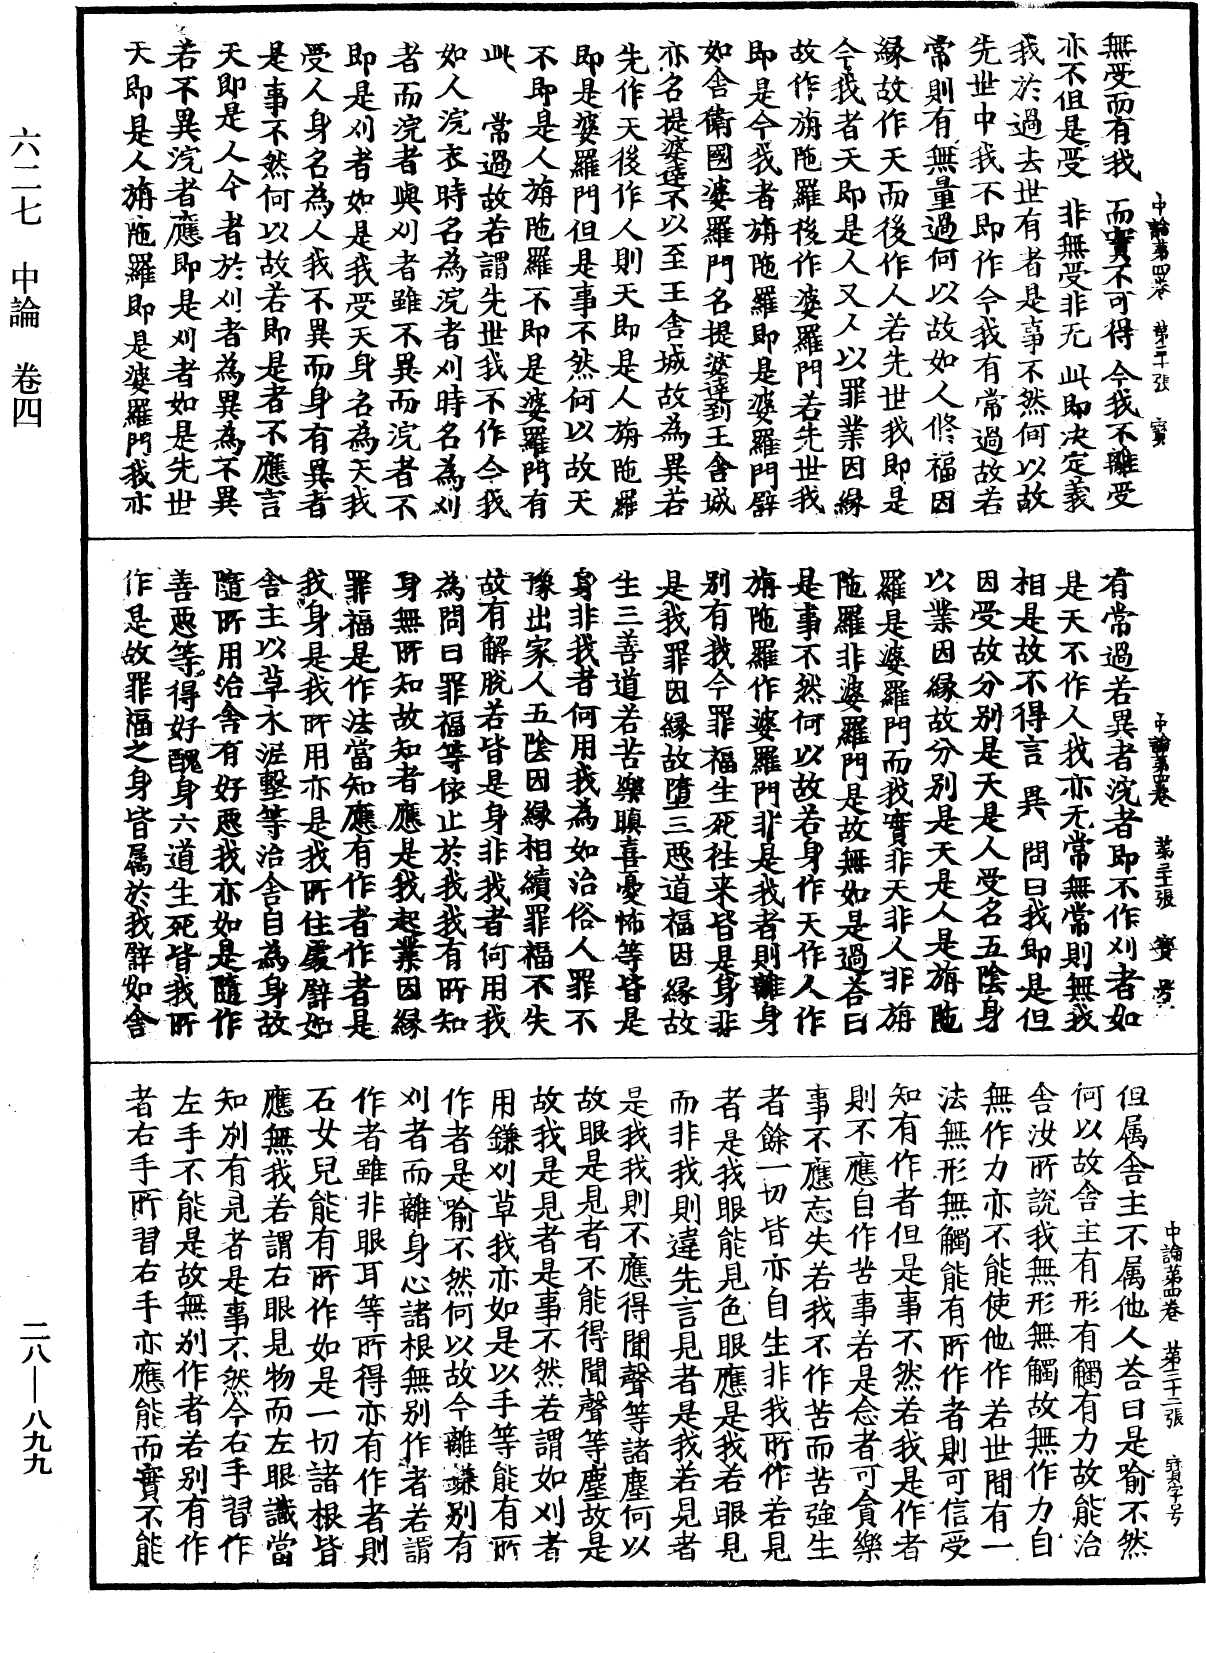 六二七　中論　卷四
二八—八九九
中論第四卷　第三十張　寶
無受而有我　而實不可得　今我不離受
亦不但是受　非無受非无　此即決定義
我於過去世有者是事不然何以故
先世中我不即作今我有常過故若
常則有無量過何以故如人修福因
緣故作天而後作人若先世我即是
今我者天即是人又人以罪業因緣
故作旃陁羅後作婆羅門若先世我
即是今我者旃陁羅即是婆羅門譬
如舍衛國婆羅門名提婆達到王舍城
亦名提婆達不以至王舍城故為異若
先作天後作人則天即是人旃陁羅
即是婆羅門但是事不然何以故天
不即是人旃陁羅不即是婆羅門有
此　常過故若謂先世我不作今我
如人浣衣時名為浣者刈時名為刈
者而浣者與刈者雖不異而浣者不
即是刈者如是我受天身名為天我
受人身名為人我不異而身有異者
是事不然何以故若即是者不應言
天即是人今者於刈者為異為不異
若不異浣者應即是刈者如是先世
天即是人旃陁羅即是婆羅門我亦
中論第四卷　第三十一張　寶　号
有常過若異者浣者即不作刈者如
是天不作人我亦无常無常則無我
相是故不得言　異　問曰我即是但
因受故分別是天是人受名五陰身
以業因緣故分別是天是人是旃陁
羅是婆羅門而我實非天非人非旃
陁羅非婆羅門是故無如是過荅曰
是事不然何以故若身作天作人作
旃陁羅作婆羅門非是我者則離身
別有我今罪福生死往来皆是身非
是我罪因緣故墮三惡道福因緣故
生三善道若苦樂瞋喜憂怖等皆是
身非我者何用我為如治俗人罪不
豫出家人五陰因緣相續罪福不失
故有解脫若皆是身非我者何用我
為問曰罪福等依止於我我有所知
身無所知故知者應是我起業因緣
罪福是作法當知應有作者作者是
我身是我所用亦是我所住處譬如
舍主以草木泥墼等治舍自為身故
隨所用治舍有好惡我亦如是隨作
善惡等得好醜身六道生死皆我所
作是故罪福之身皆屬於我譬如舍
中論第四卷　第三十二張　寶字号
但属舍主不属他人荅曰是喻不然
何以故舍主有形有觸有力故能治
舍汝所說我無形無觸故無作力自
無作力亦不能使他作若世間有一
法無形無觸能有所作者則可信受
知有作者但是事不然若我是作者
則不應自作苦事若是念者可貪樂
事不應忘失若我不作苦而苦強生
者餘一切皆亦自生非我所作若見
者是我眼能見色眼應是我若眼見
而非我則違先言見者是我若見者
是我我則不應得聞聲等諸塵何以
故眼是見者不能得聞聲等塵故是
故我是見者是事不然若謂如刈者
用鎌刈草我亦如是以手等能有所
作者是喻不然何以故今離鎌別有
刈者而離身心諸根無別作者若謂
作者雖非眼耳等所得亦有作者則
石女兒能有所作如是一切諸根皆
應無我若謂右眼見物而左眼識當
知別有見者是事不然今右手習作
左手不能是故無別作者若別有作
者右手所習右手亦應能而實不能